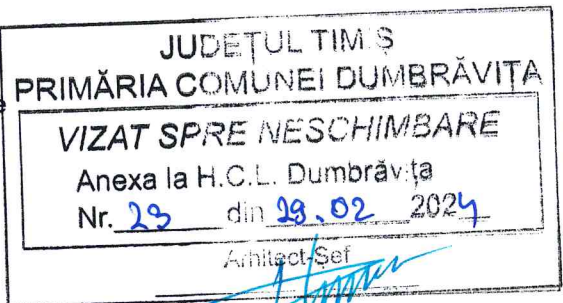 JUDEȚUL TIMIȘ
PRIMĂRIA COMUNEI DUMBRĂVIȚA
VIZAT SPRE NESCHIMBARE
Anexa la H.C.L. Dumbrăvița
Nr. 23 din 29.02 2024
Arhitect-Șef